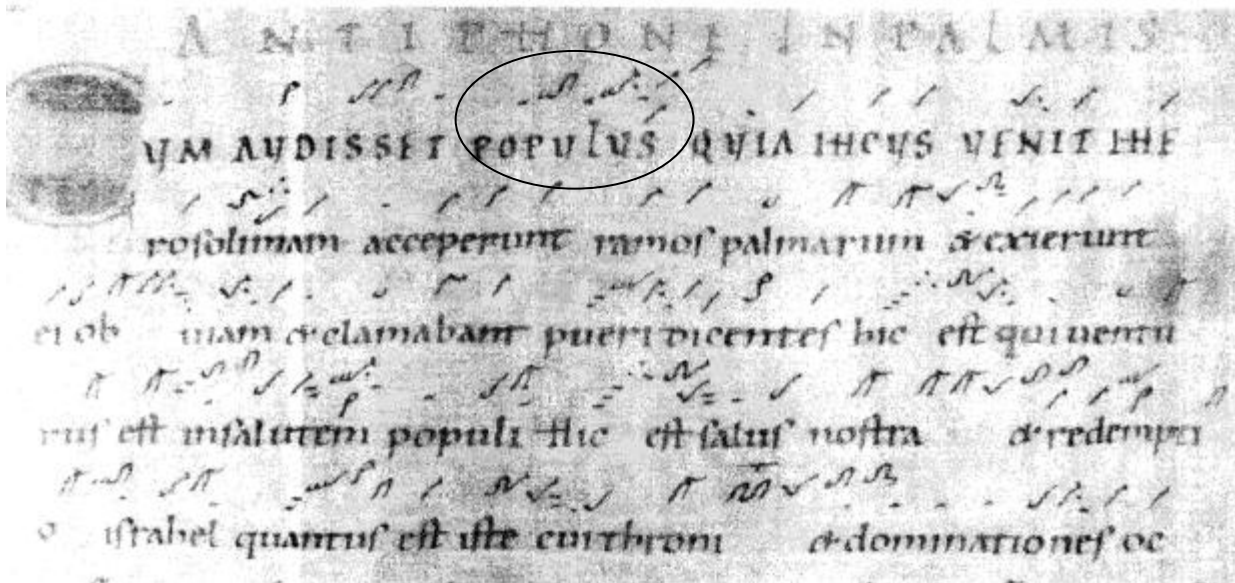 ANTIPHONE IN PALMIS
UM AUDISSET POPULUS QUIA IHCUS VENIT IHE
rosolimam acceperunt ramos palmarum & exierunt
ei ob uiam & clamabant pueri dicentes hic est qui uentu
rus est in salutem populi Hic est salus nostra & redempti
o israhel quantus est iste cui throni & dominationes oc